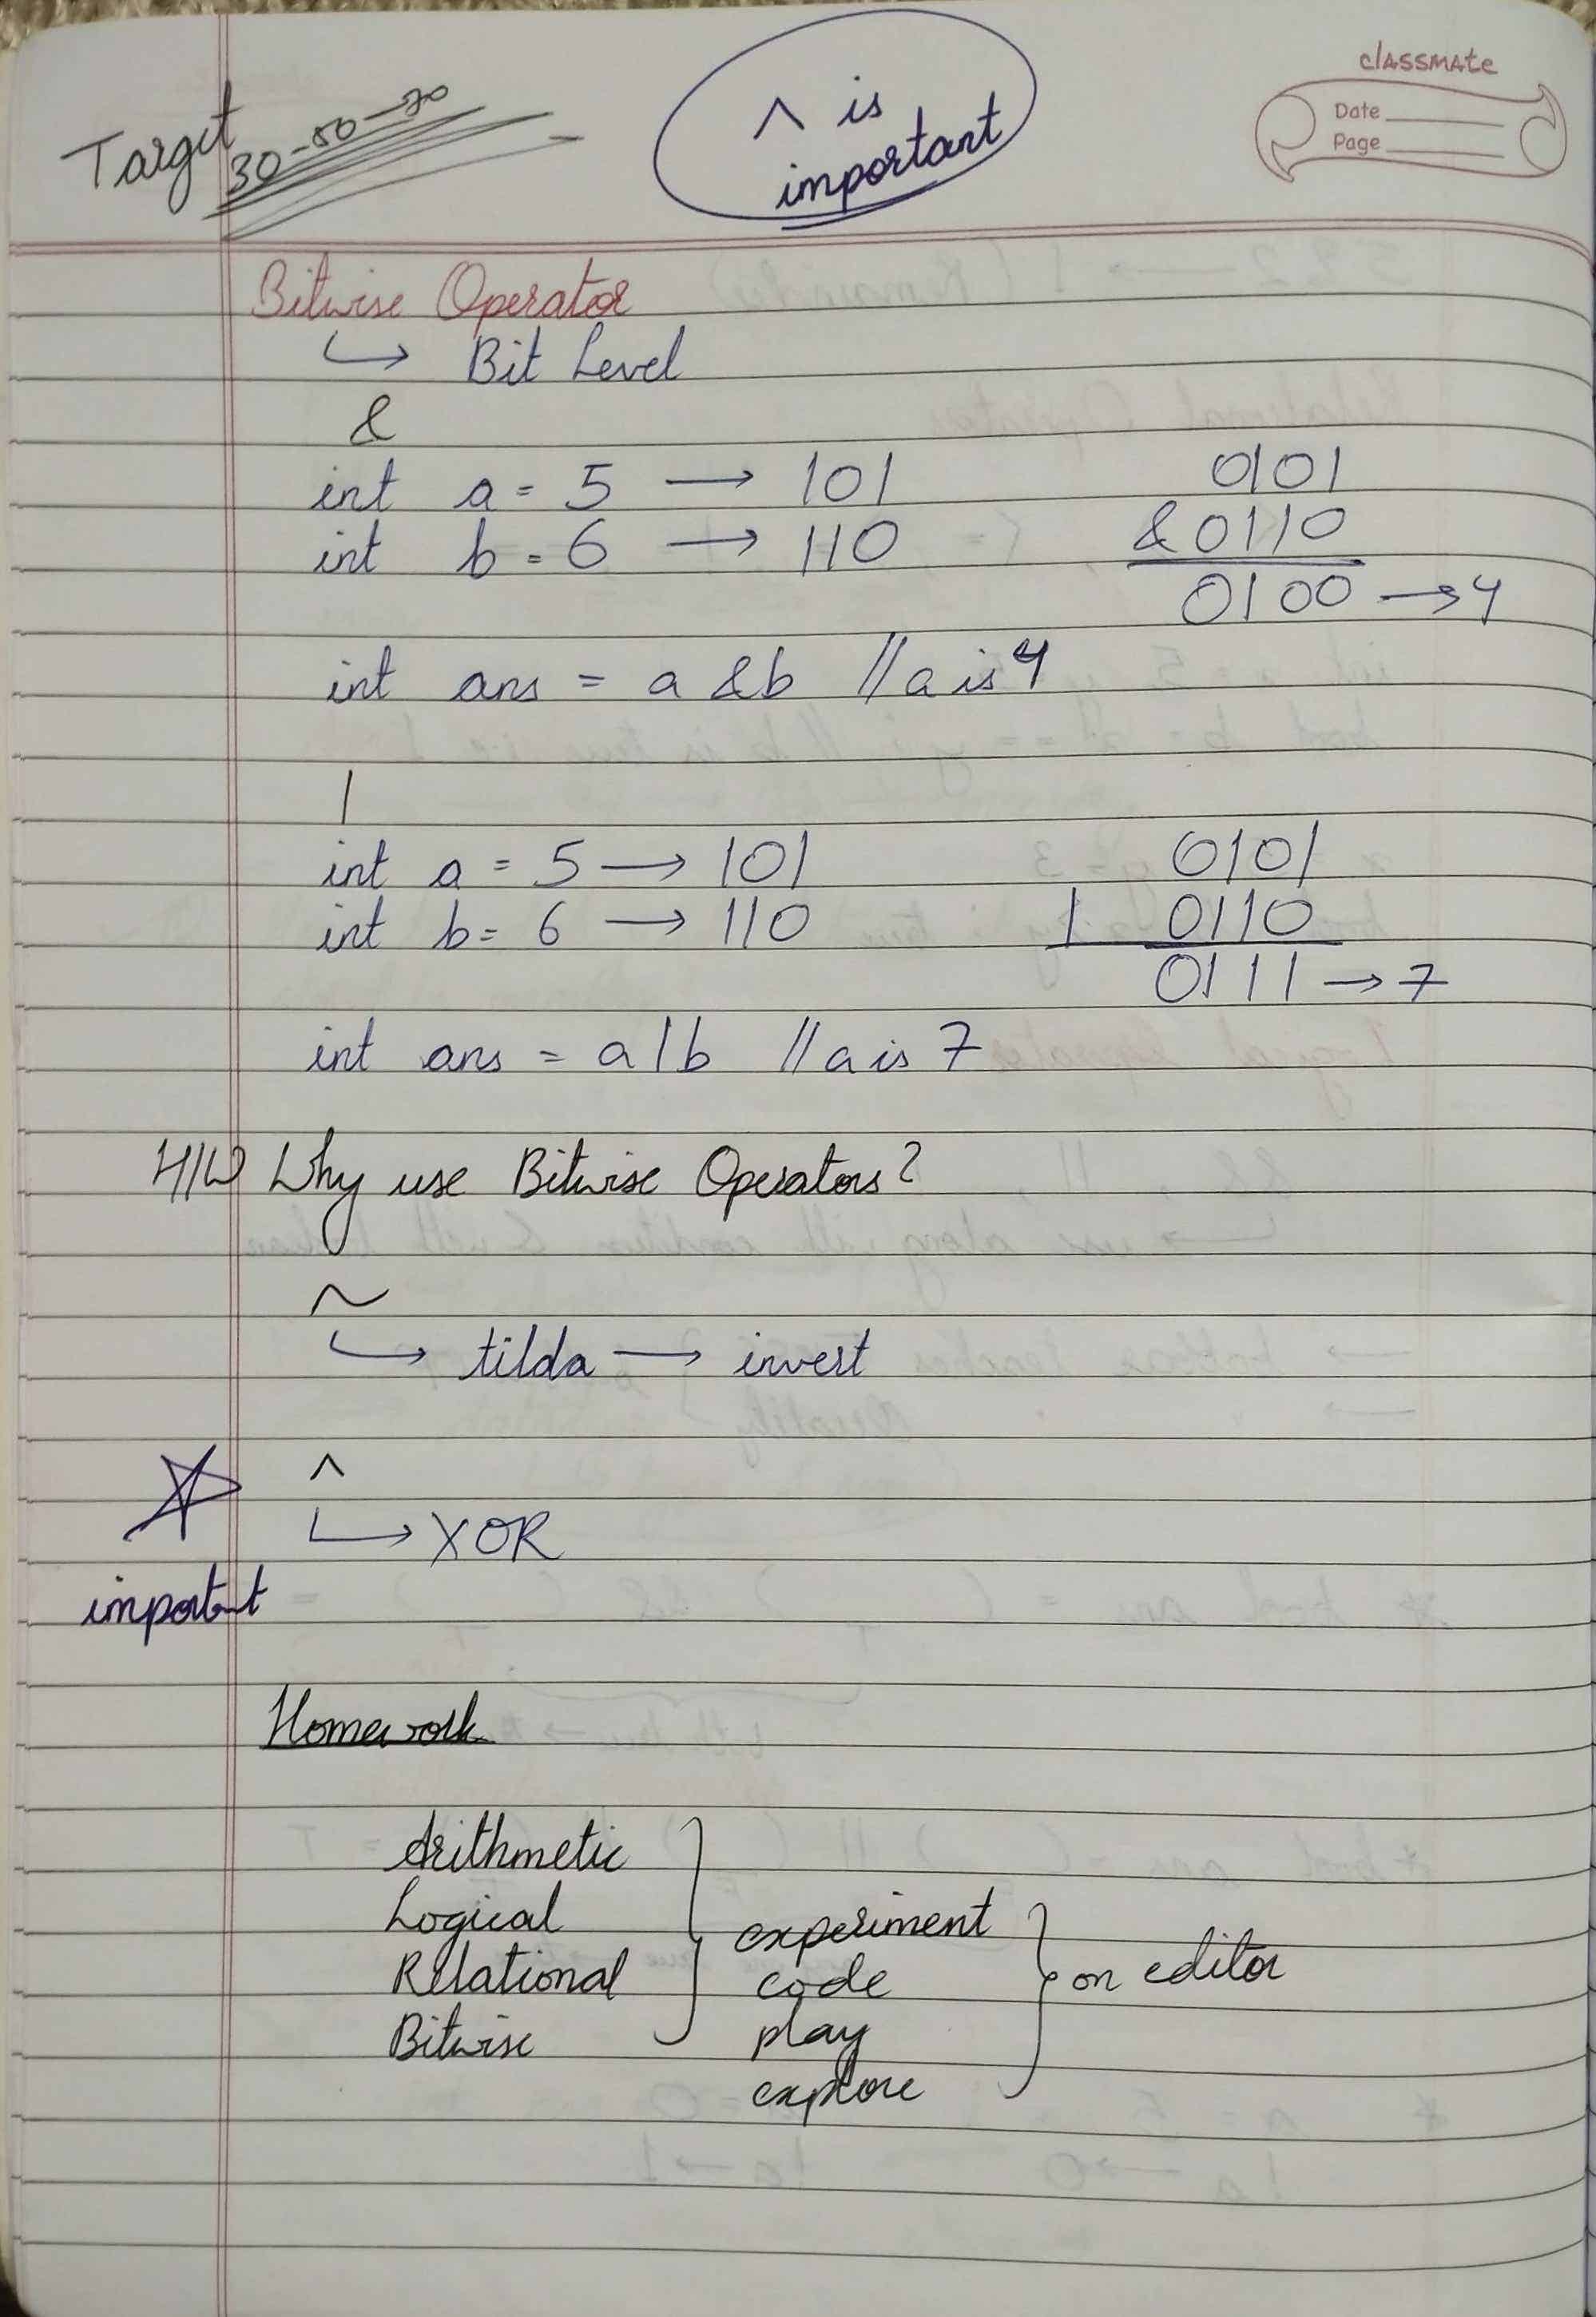 Target 30-50-70
^ is
important
classmate
Date
Page
Bitwise Operator
↳ Bit Level
&
int a = 5 → 101
int b = 6 → 110
0101
& 0110
0100 → 4
int ans = a & b // a is 4
|
int a = 5 → 101
int b = 6 → 110
0101
| 0110
0111 → 7
int ans = a | b // a is 7
H/W Why use Bitwise Operators?
~
↳ tilda → invert
^
↳ XOR
important
Homework
Arithmetic
Logical
Relational
Bitwise
experiment
code
play
explore
on editor